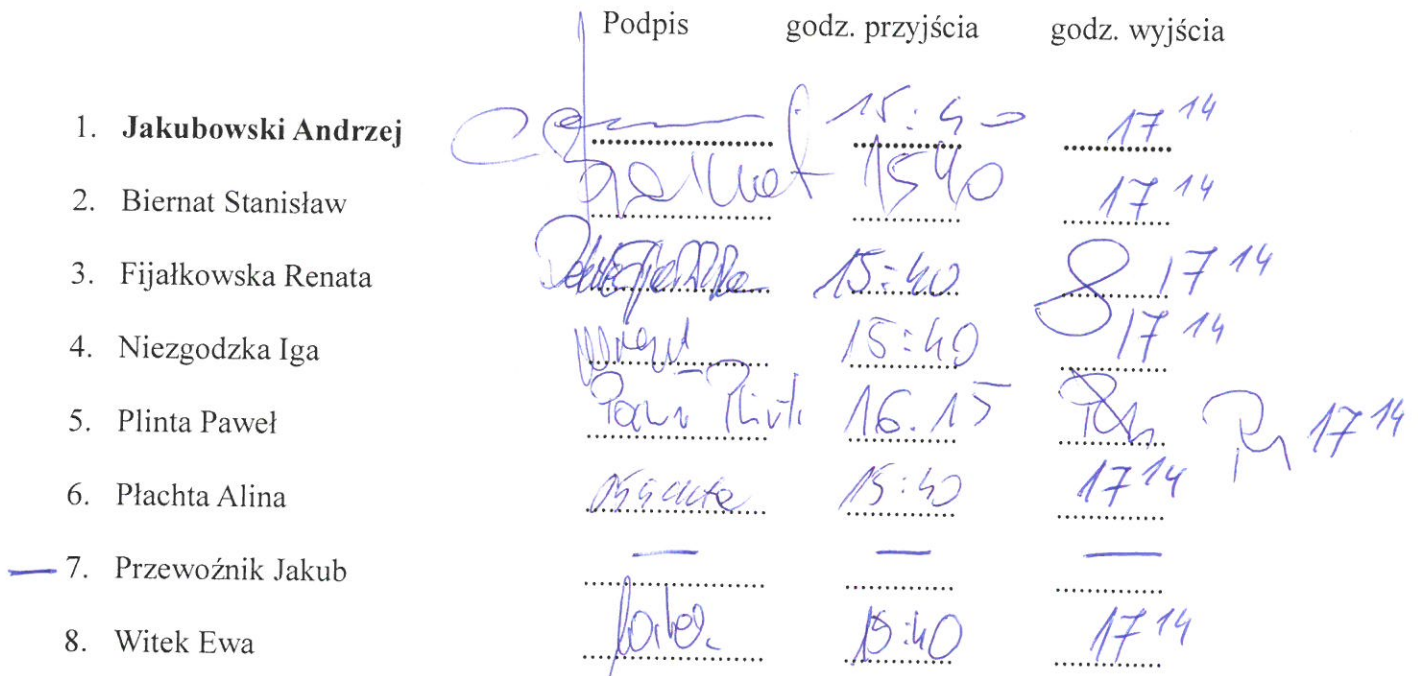 Podpis godz. przyjścia godz. wyjścia
1. Jakubowski Andrzej 15:40 17 14
2. Biernat Stanisław 1540 17 14
3. Fijałkowska Renata 15:40 17 14
4. Niezgodzka Iga 15:40 17 14
5. Plinta Paweł 16.15 17 14
6. Płachta Alina 15:40 17 14
— 7. Przewoźnik Jakub — — —
8. Witek Ewa 15:40 17 14